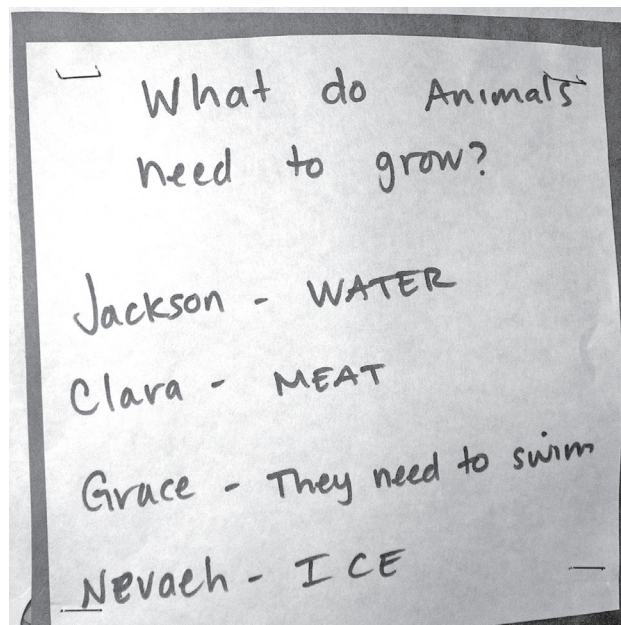 What do Animals
need to grow?
Jackson - WATER
Clara - MEAT
Grace - They need to swim
Nevaeh - ICE